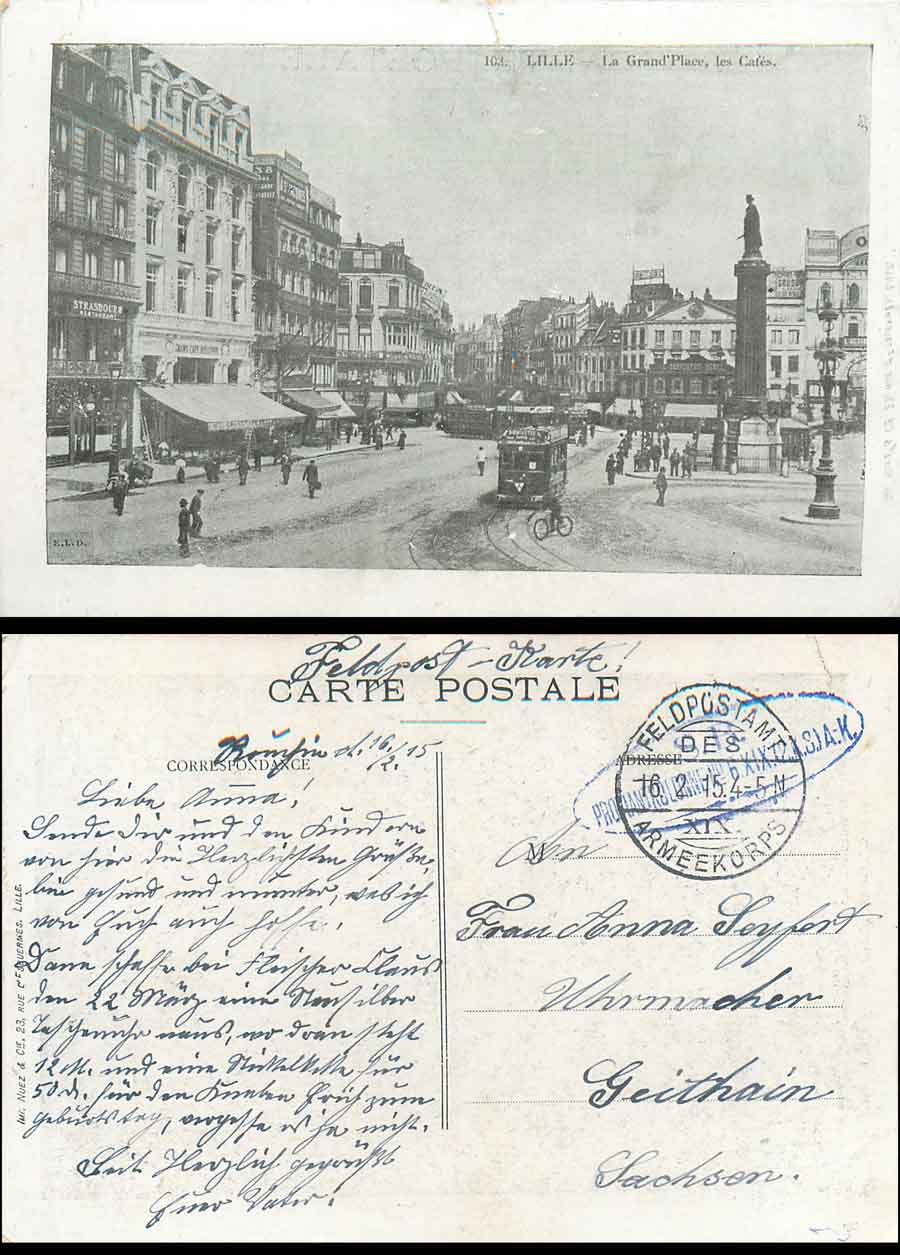 103. LILLE – La Grand'Place, les Cafés.
STRASBOURG
RESTAURANT
E.L.D.
Feldpost-Karte!
CARTE POSTALE
CORRESPONDANCE
ADRESSE
d. 16./2. 15
FELDPOSTAMT
DES
16. 2. 15. 4-5 N
XIX.
ARMEEKORPS
Liebe Anna!
Sende Dir und den Kindern
von hier die Herzlichsten Grüße,
bin gesund und munter, was ich
von Euch auch hoffe.
Dann schaffe bei Fleischer Claus
den 22 März eine Neusilber
Taschenuhr naus, wo dran steht
12 M. und eine Nickelkette für
50 d. für den Knaben Erich zum
Geburtstag, vergesse es ja nicht.
Seit Herzlich gegrüßt
Euer Vater.
M
An
Frau Anna Seyfert
Uhrmacher
Geithain
Sachsen.
IMP. NUEZ & Cie, 23, RUE D'ESQUERMES. LILLE.